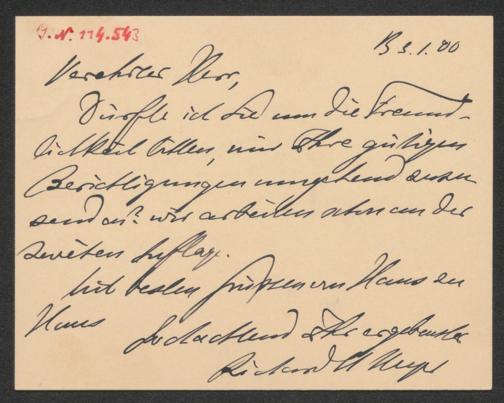 J. N. 114.543
B 3.1.00
Verehrter Herr,
Dürfte ich Sie um die Freund-
lichkeit bitten, mir Ihre gütigen
Berichtigungen umgehend zuzu
senden? wir arbeiten schon an der
zweiten Auflage.
Mit besten Grüssen von Haus zu
Haus
Hochachtend Ihr ergebenster
Richard M Meyer